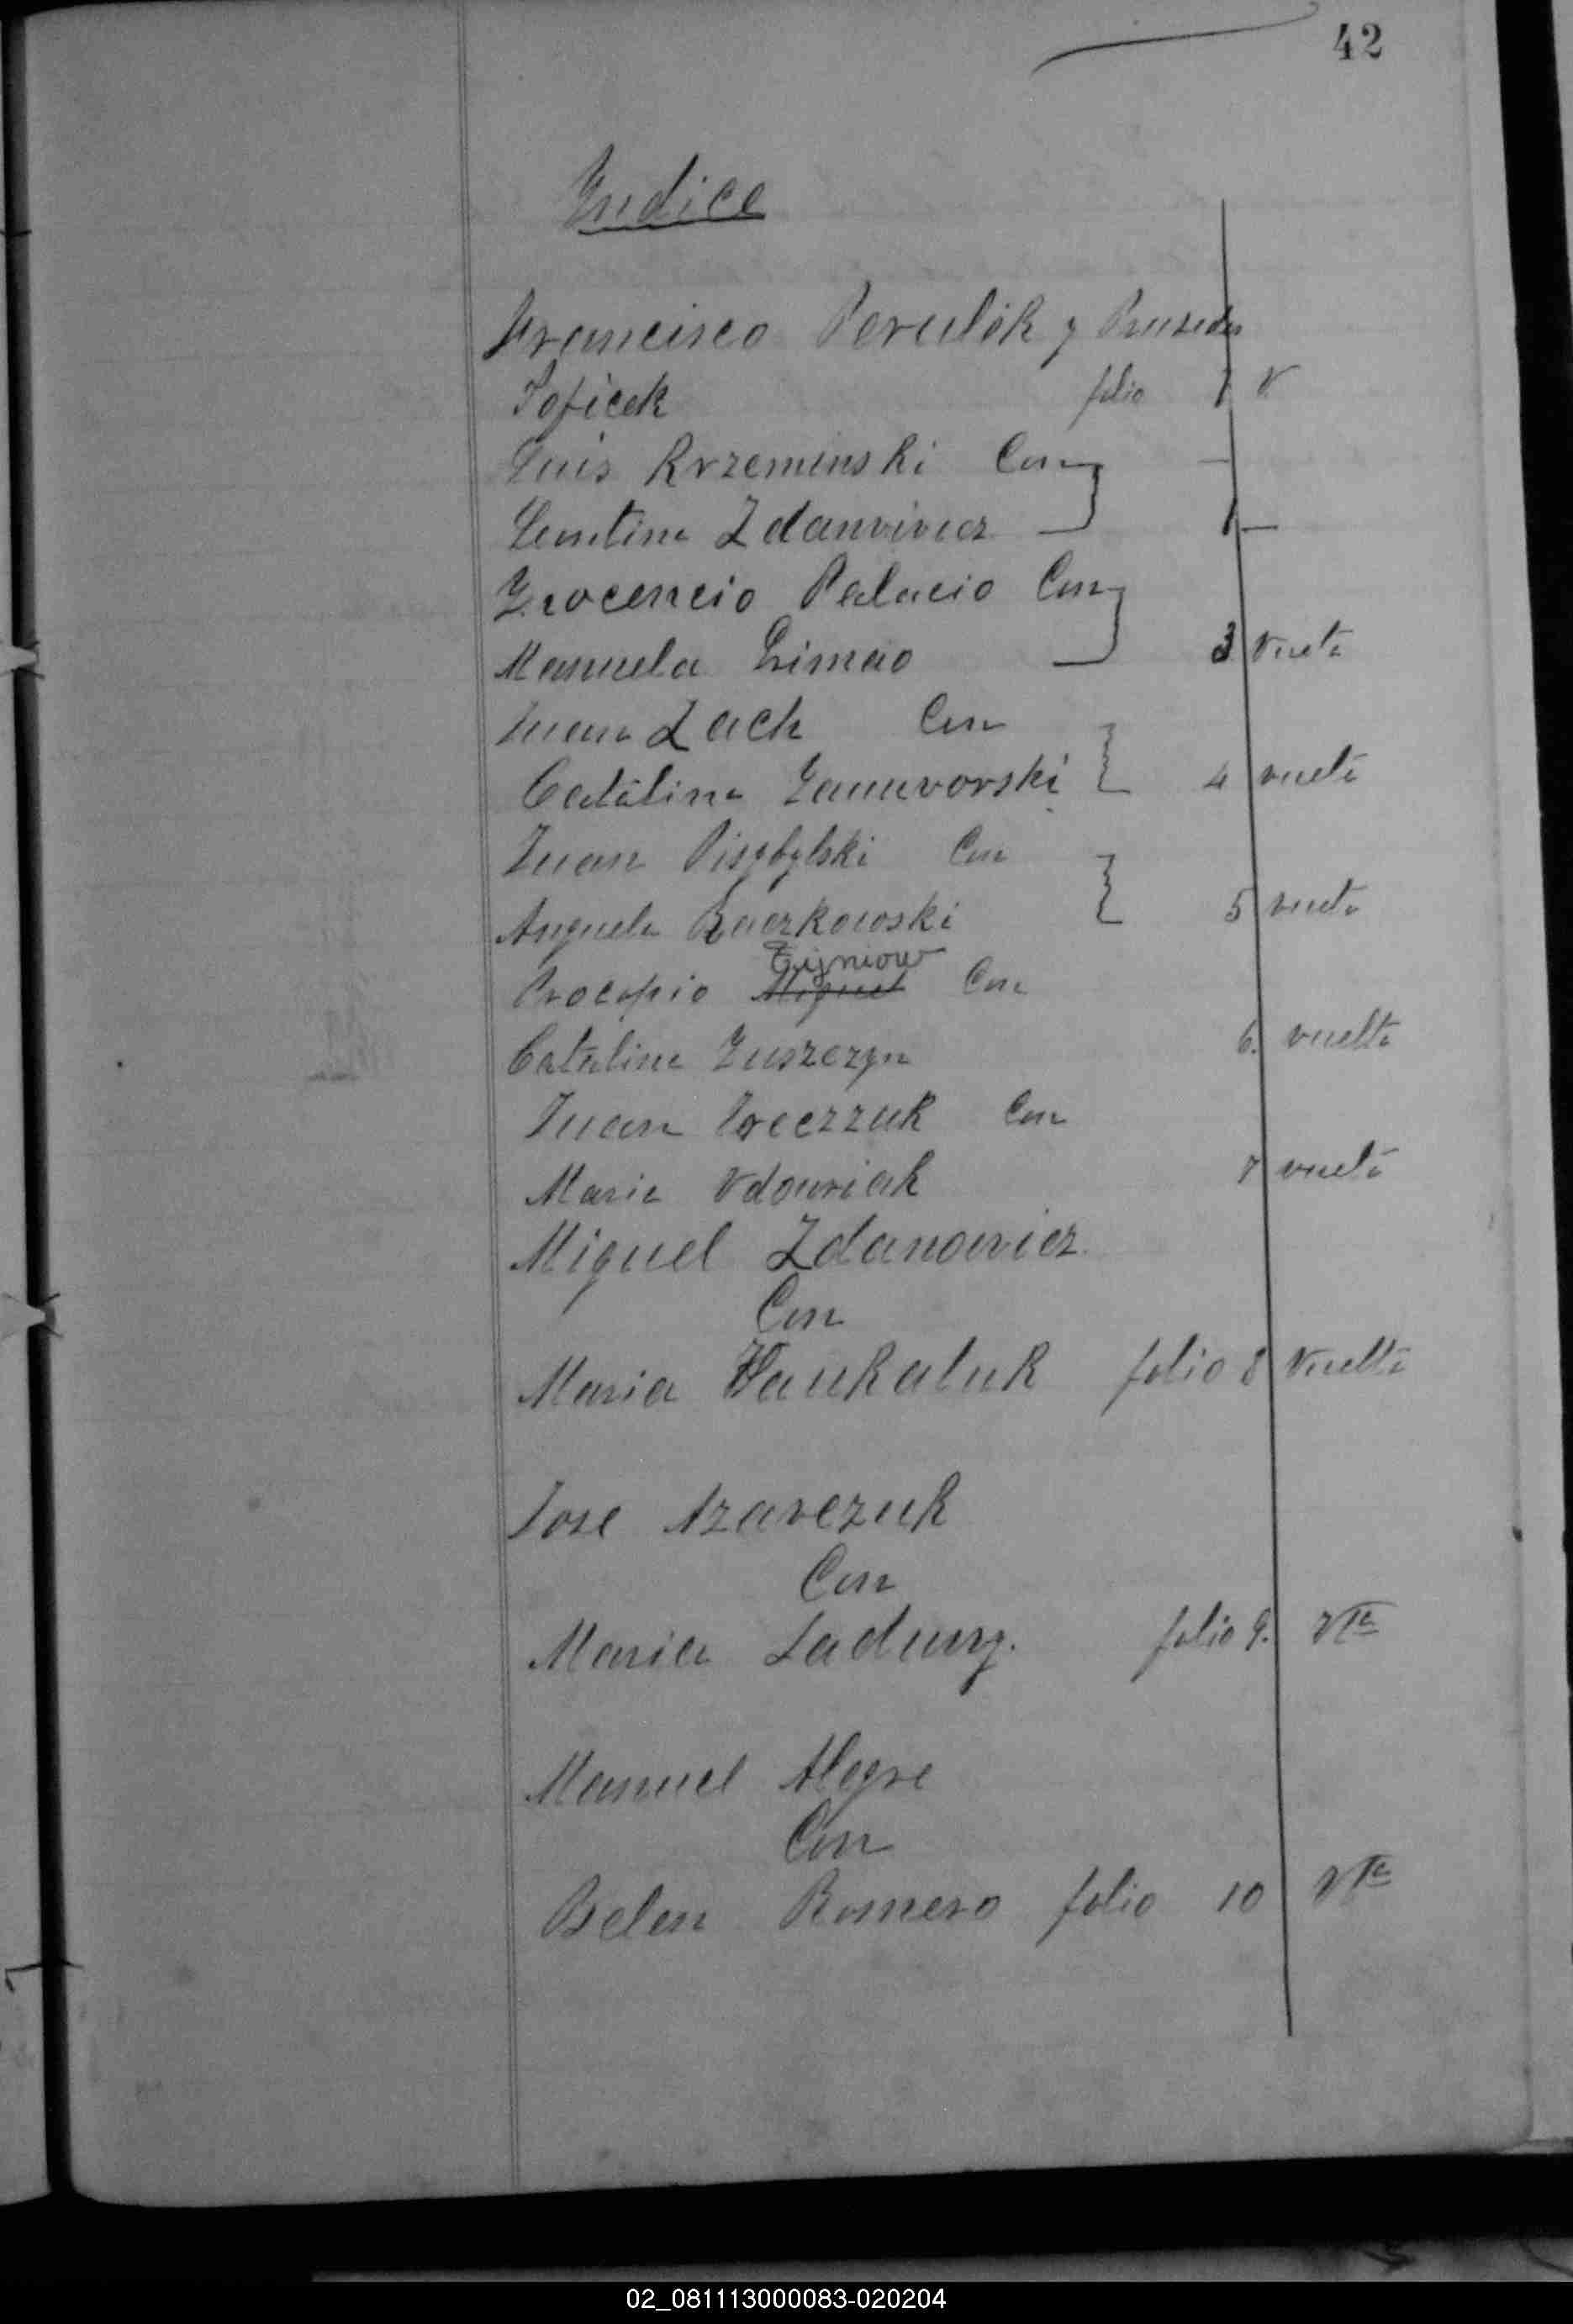 42
Indice
Francisco Perulik y
Toficek folio 1 V
Luis Krzeminski Con
Leontina Zdanvivicz 1
Inocencio Palacio Con
Manuela Limao 3 Vuelta
Juan Lach Con
Catalina Yanuvorski 4 vuelta
Juan Pisybylski Con
Anguela Raczkowski 5 vuelta
Tijniow
Procopio Miguel Con
Catalina Juszczyn 6. vuelta
Juan Con
Maria Vdowiak 7 vuelta
Miguel Zdanowicz
Con
Maria Haukaluk folio 8 Vuelta
Jose Azavczuk
Con
Maria Ladury. folio 9. Vta
Manuel Alegre
Con
Belen Romero folio 10 Vta
02_081113000083-020204